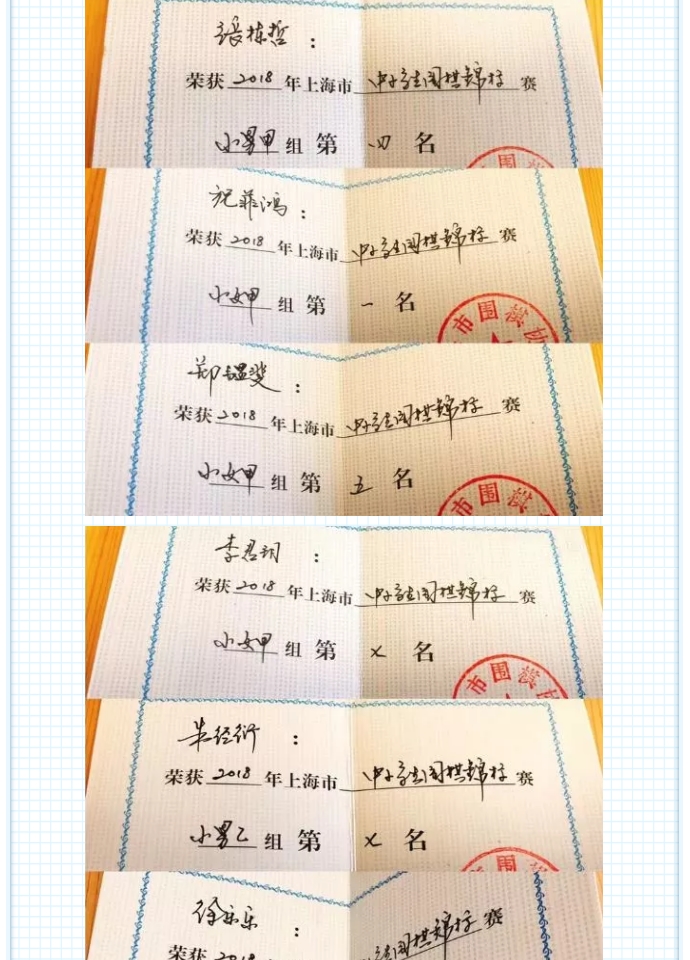 張栋哲：
荣获2018年上海市中小学生围棋锦标赛
小男甲组第四名
围
祝菲鸿：
荣获2018年上海市中小学生围棋锦标赛
小女甲组第一名
市围棋协
郑韫斐：
荣获2018年上海市中小学生围棋锦标赛
小女甲组第五名
市围棋协
李君玥：
荣获2018年上海市中小学生围棋锦标赛
小女甲组第七名
市围棋协
朱经衍：
荣获2018年上海市中小学生围棋锦标赛
小男乙组第七名
围
徐乐乐：
荣获2018
围棋锦标赛